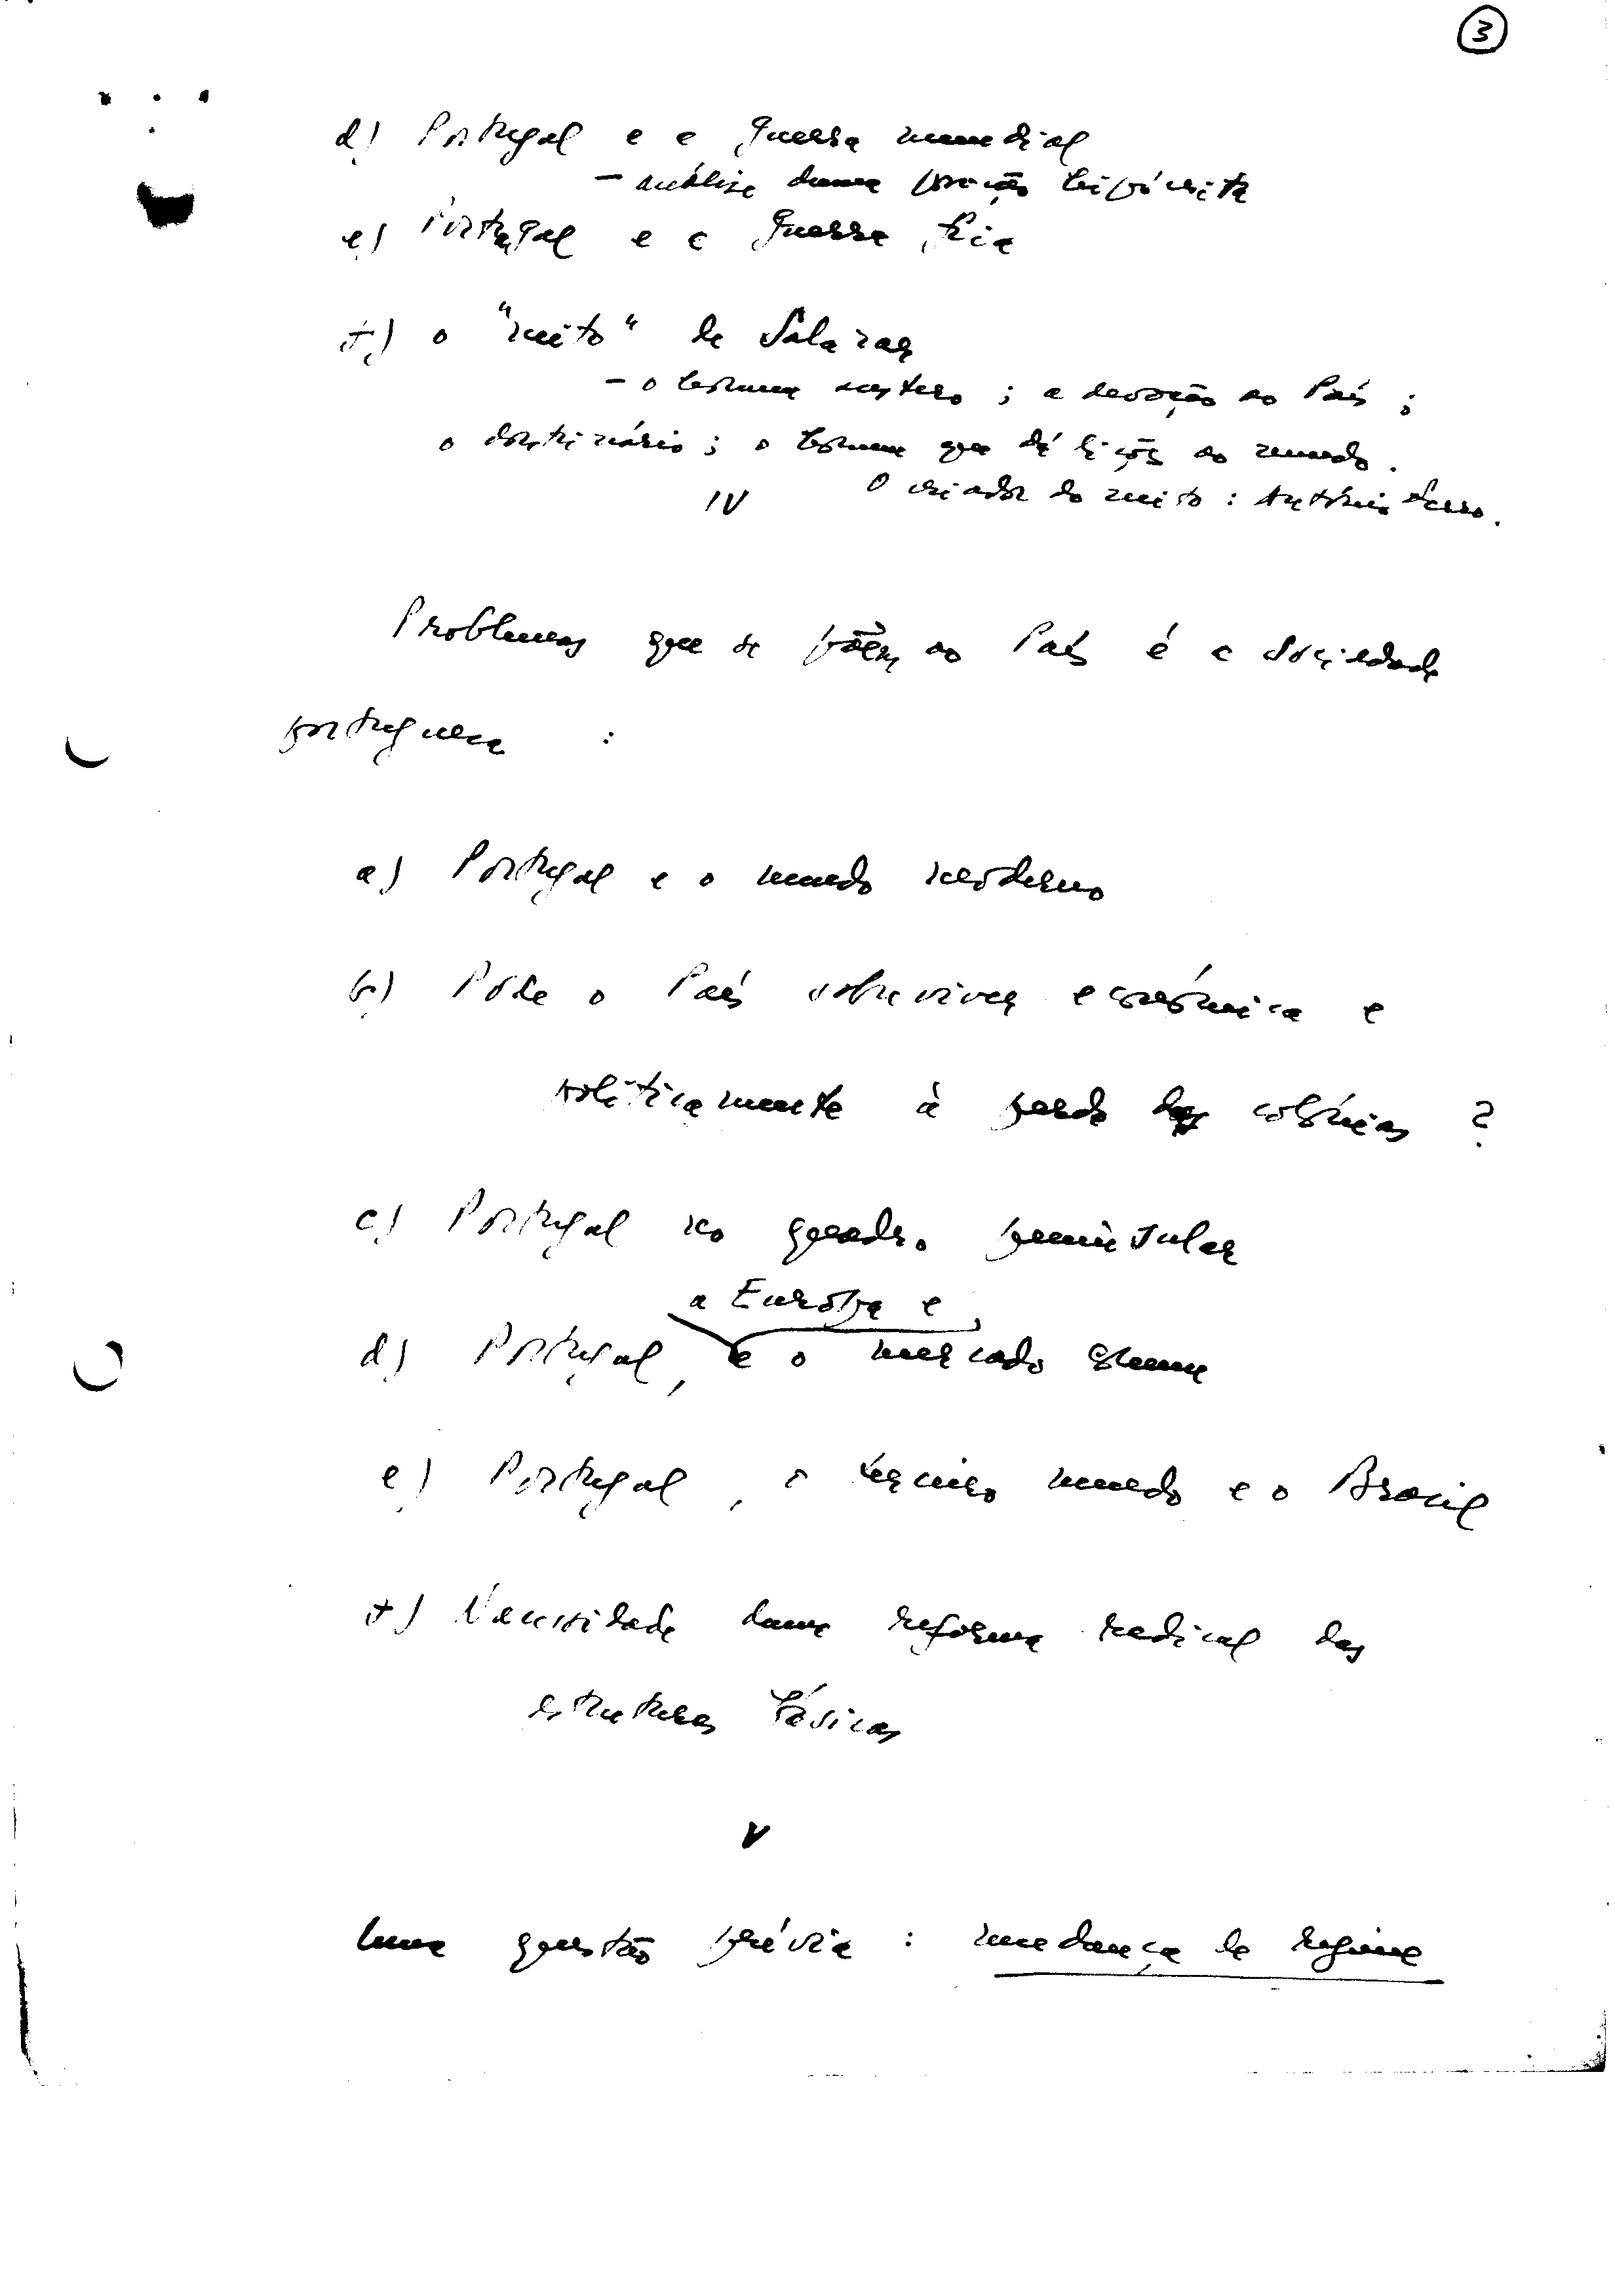 3
d) Portugal e a guerra mundial
- análise duma posição hipócrita
e) Portugal e a guerra fria
f) o "mito" de Salazar
- o homem austero ; a devoção ao País ;
o doutrinário ; o homem que dá lições ao mundo.
IV
O criador do mito : António Ferro.
Problemas que se põem ao País e à Sociedade
portuguesa :
a) Portugal e o mundo moderno
b) Pode o País sobreviver económica e
politicamente à perda das colónias ?
c) Portugal no quadro peninsular
a Europa e
d) Portugal, e o mercado comum
e) Portugal, o terceiro mundo e o Brasil
f) Necessidade duma reforma radical das
estruturas básicas
V
Uma questão prévia : mudança de regime